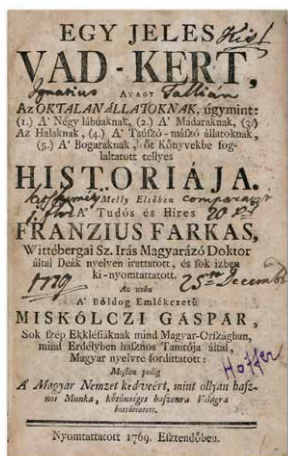 EGY JELES
VAD-KERT,
AVAGY
Az OKTALAN ÁLLATOKNAK, úgymint:
(1.) A' Négy lábúaknak, (2.) A' Madaraknak, (3.)
Az Halaknak, (4.) A' Tsúszó-mászó állatoknak,
(5.) A' Bogaraknak, öt Könyvekbe fog-
laltatott tellyes
HISTORIÁJA.
Melly Elsőben
A' Tudós és Híres
FRANZIUS FARKAS,
Wittébergai Sz. Irás Magyarázó Doktor
által Deák nyelven irattatott, és sok ízben
ki-nyomtattatott.
Az után
A' Bóldog Emlékezetű
MISKÓLCZI GÁSPÁR,
Sok szép Ekklésiáknak mind Magyar-Országban,
mind Erdélyben hasznos Tanítója által,
Magyar nyelvre fordíttatott:
Mostan pedig
A' Magyar Nemzet kedvéért, mint ollyan hasz-
nos Munka, közönséges haszonra Világra
botsáttatott.
Nyomtattatott 1769. Esztendőben.
Kis
Ignatius Tallián
comparavit
1779
20 xr
25 Decemb
Hoffer